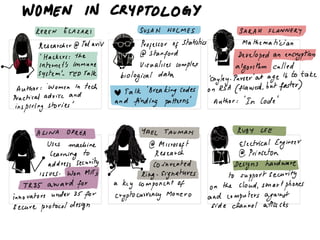 WOMEN IN CRYPTOLOGY
KEREN ELAZARI
Researcher @ Tel aviv
'Hackers: the
Internet's immune
System'. TED Talk
Author: Women in tech
Practical advice and
inspiring stories'
SUSAN HOLMES
Professor of Statistics
@ Stanford
Visualises complex
biological data
Talk 'Breaking codes
and finding patterns'
SARAH FLANNERY
Mathematician
Developed an encryption
algorithm called
Cayley-Purser at age 16 to take
on RSA (flawed, but faster)
Author: 'In Code'
ALINA OPREA
Uses machine
learning to
address security
issues. Won MIT's
TR35 award for
innovators under 35 for
secure protocol design
YAEL TAUMAN
@ Microsoft
Research
Co-invented
Ring-Signatures
a key component of
cryptocurrency Monero
RUBY LEE
Electrical Engineer
@ Princeton
Designs hardware
to support security
on the cloud, smartphones
and computers against
side channel attacks